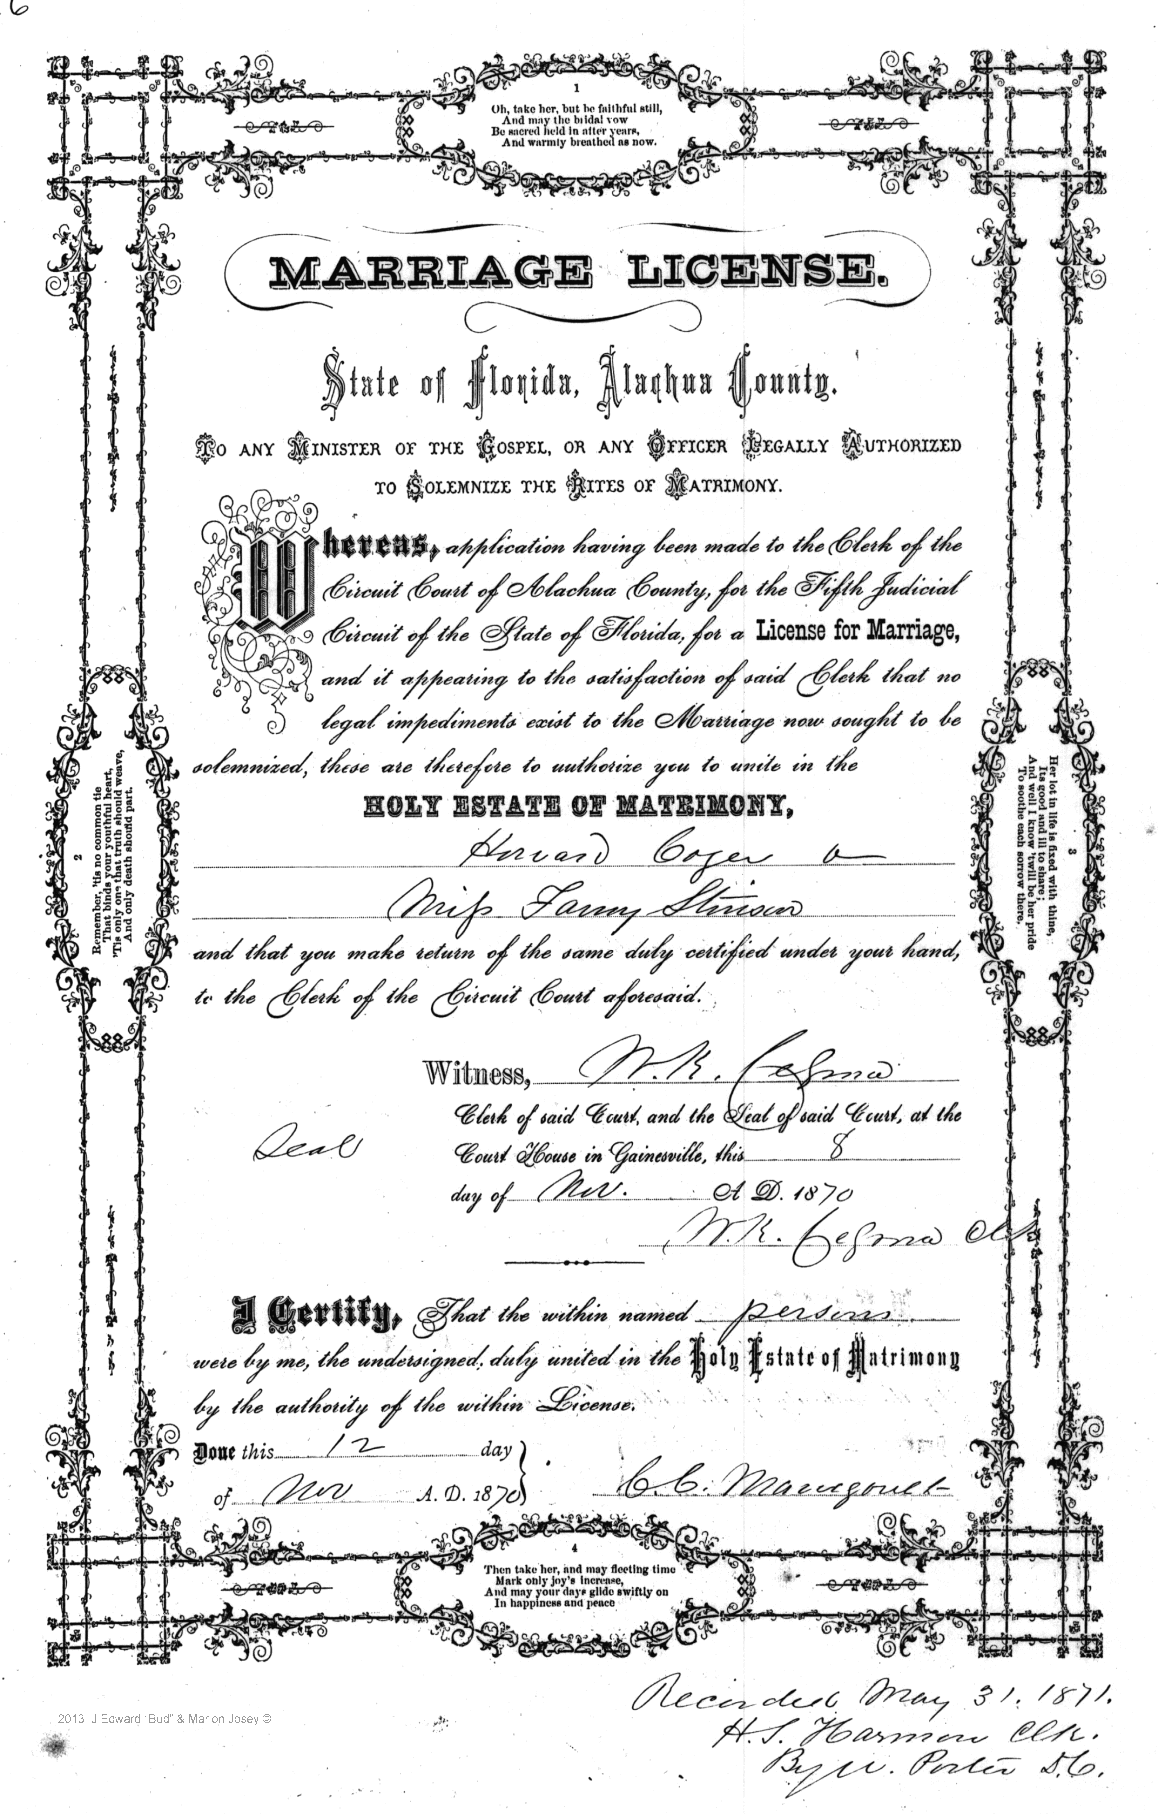 6
1
Oh, take her, but be faithful still,
And may the bridal vow
Be sacred held in after years,
And warmly breathed as now.
MARRIAGE LICENSE.
State of Florida, Alachua County.
TO ANY MINISTER OF THE GOSPEL, OR ANY OFFICER LEGALLY AUTHORIZED
TO SOLEMNIZE THE RITES OF MATRIMONY.
Whereas, application having been made to the Clerk of the
Circuit Court of Alachua County, for the Fifth Judicial
Circuit of the State of Florida, for a License for Marriage,
and it appearing to the satisfaction of said Clerk that no
legal impediments exist to the Marriage now sought to be
solemnized, these are therefore to authorize you to unite in the
HOLY ESTATE OF MATRIMONY,
Howard Coger
Miss Fanny Stinson
and that you make return of the same duly certified under your hand,
to the Clerk of the Circuit Court aforesaid.
Witness, W. K. Cessna
Clerk of said Court, and the Seal of said Court, at the
Seal
Court House in Gainesville, this 8
day of Nov. A D. 1870
W. K. Cessna Clk
I Certify, That the within named persons
were by me, the undersigned, duly united in the Holy Estate of Matrimony
by the authority of the within License.
Done this 12 day
of Nov A. D. 1870
C. C.
2
Remember, 'tis no common tie
That binds your youthful heart,
'Tis only one that truth should weave,
And only death should part.
3
Her lot in life is fixed with thine,
Its good and ill to share;
And well I know 'twill be her pride
To soothe each sorrow there.
4
Then take her, and may fleeting time
Mark only joy's increase,
And may your days glide swiftly on
In happiness and peace
Recorded May 31. 1871.
H. S. Harmon Clk.
By W. Porter D.C.
2013 J Edward "Bud" & Marion Josey ©